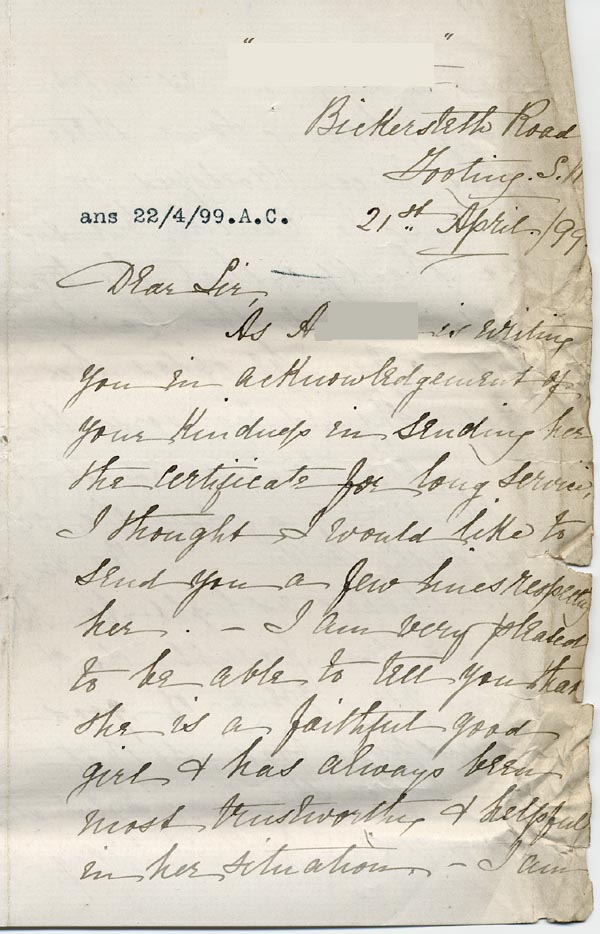 "          "
Bickersteth Road
Tooting. S.W
ans 22/4/99.A.C.
21st April /99
Dear Sir,
As A is writing
you in acknowledgement of
your kindness in sending her
the certificate for long service,
I thought I would like to
send you a few lines respecting
her . - I am very pleased
to be able to tell you that
she is a faithful good
girl & has always been
most trustworthy & helpful
in her situation - I am